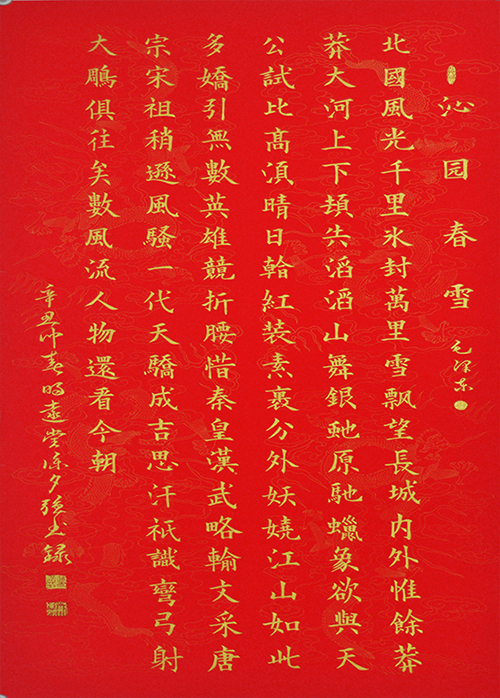 沁园春雪 毛泽东
北國風光千里氷封萬里雪飄望長城内外惟餘莽
莽大河上下頓失滔滔山舞銀虵原馳蠟象欲與天
公試比高湏晴日看紅装素裹分外妖嬈江山如此
多嬌引無數英雄競折腰惜秦皇漢武略輸文采唐
宗宋祖稍遜風騷一代天驕成吉思汗祇識彎弓射
大鵰俱往矣數風流人物還看今朝
辛丑仲春 堂 书録